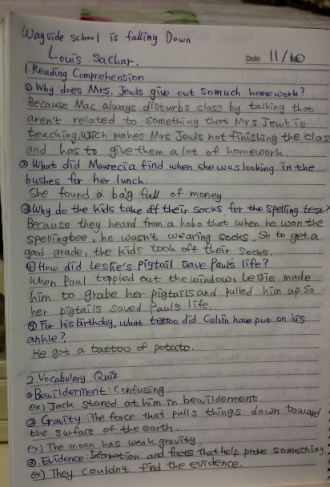 Wayside school is falling Down
Louis Sachar.
Date 11/10
1. Reading Comprehension
① Why does Mrs. Jewls give out so much homework?
Because Mac always disturbs class by talking that
aren't related to something that Mrs. Jewls is
teaching, wich makes Mrs Jewls not finishing the class
and has to give them a lot of homework.
② What did Maurecia find when she was looking in the
bushes for her lunch
She found a bag full of money
③ Why do the kids take off their socks for the spelling test?
Because they heard from a hobo that when he won the
spellingbee, he wasn't wearing socks. So to get a
good grade, the kids took off their socks.
④ How did Leslie's Pigtail save Pauls life?
When Paul toppled out the window, Leslie made
him to grabe her pigtails and pulled him up. So
her pigtails saved Paul's life.
⑤ For his birthday, what tattoo did Calvin have put on his
ankle?
He got a tattoo of potato.
2. Vocabulary Quiz
① Bewilderment: Confusing
ex) Jack stored at him in bewilderment
② Gravity: The force that pulls things down toward
the surface of the earth.
ex) The moon has weak gravity.
③ Evidence: Information and facts that help prove something
ex) They couldn't find the evidence.